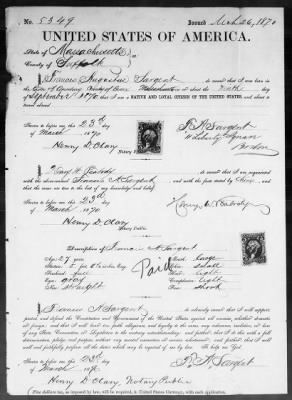 No. 5349 Issued Mch 26, 1870
UNITED STATES OF AMERICA.
State of Massachusetts
County of Suffolk
I, Francis Augustus Sargent do swear that I was born in the
town of County of Essex Massachusetts on or about the day
of September ; that I am a NATIVE and LOYAL CITIZEN OF THE UNITED STATES and about
to travel abroad.
Sworn to before me this 23d day
of March 1870
F. A. Sargent
Liberty Square
Boston
Henry D. Clary
Notary Public.
I, Peabody do swear that I am acquainted
with the above named Francis A. Sargent and with the facts stated by
that the same are true to the best of my knowledge and belief
Sworn to before me this 23d
day of March 1870
Henry D. Clary
Notary Public
Description of Francis A. Sargent
Age: 27 years
Stature: 5 feet
Forehead: full
Eyes: gray
Nose: straight
Paid
Mouth: large
Chin: small
Hair: light
Complexion: light
Face:
I, Francis A. Sargent do solemnly swear that I will support,
protect, and defend the Constitution and Government of the United States against all enemies, whether domestic
or foreign; and that I will bear true faith, allegiance and loyalty to the same, any ordinance, resolution, or law
of any State Convention or Legislature to the contrary notwithstanding; and further, that I do this with a full
determination, pledge, and purpose, without any mental reservation or evasion whatsoever; and further, that I will
well and faithfully perform all the duties which may be required of me by law. So help me God.
Sworn to before me this 23d
day of March 1870
F. A. Sargent
Henry D. Clary, Notary Public